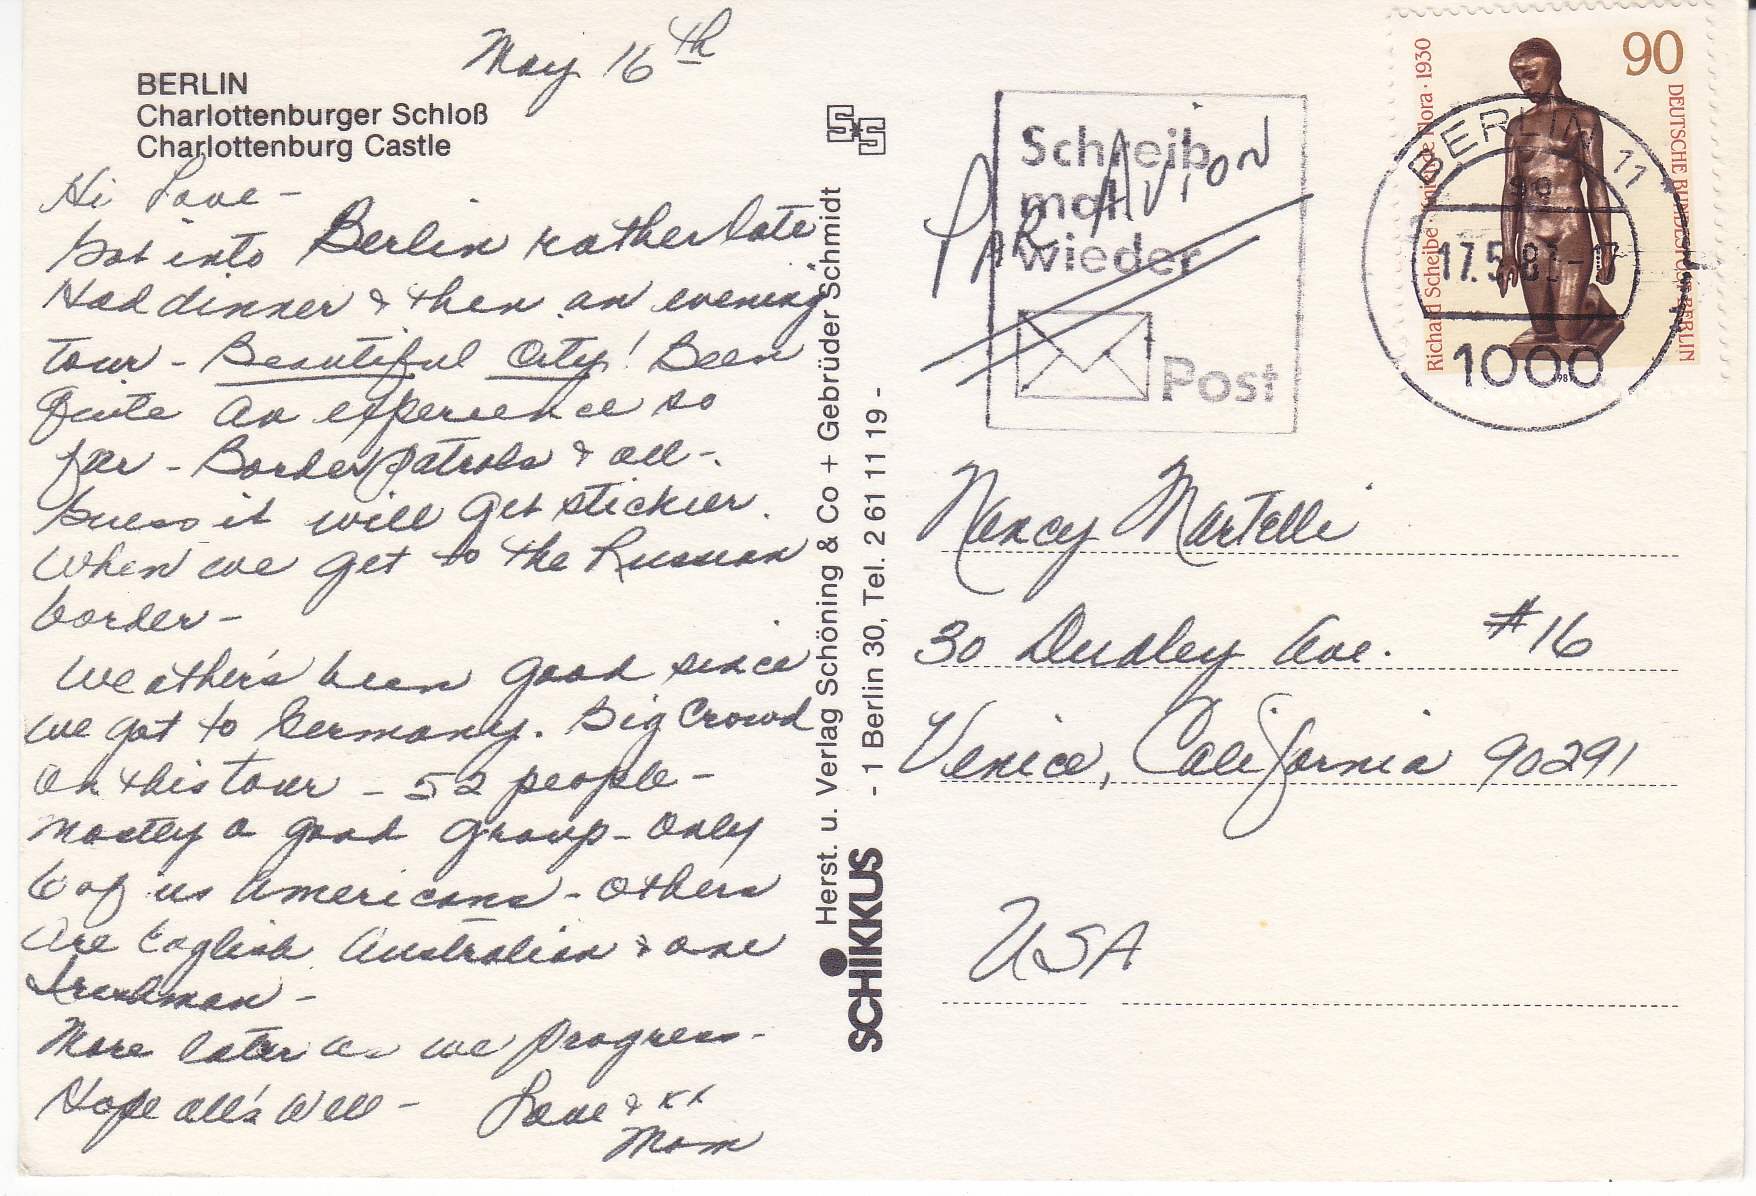 May 16th
BERLIN
Charlottenburger Schloß
Charlottenburg Castle
Hi Love -
Got into Berlin rather late
Had dinner & then an evening
tour - Beautiful City! Been
Quite an experience so
far - Border patrols & all -
Guess it will get stickier
When we get to the Russian
border -
Weather's been good since
we got to Germany. Big Crowd
On this tour - 52 people -
mostly a good group - Only
6 of us Americans - Others
Are English Australian & one
Irishman -
More later as we progress -
Hope all's Well - Love & xx
Mom
SS
Herst. u. Verlag Schöning & Co + Gebrüder Schmidt
- 1 Berlin 30, Tel. 2 61 11 19 -
SCHIKKUS
PAR AVION
Schreib
mal
wieder
Post
90
DEUTSCHE BUNDESPOST BERLIN
Richard Scheibe · Kniende Flora · 1930
BERLIN 11
17.5.8
1000
Nancy Martelli
30 Dudley Ave. #16
Venice, California 90291
USA